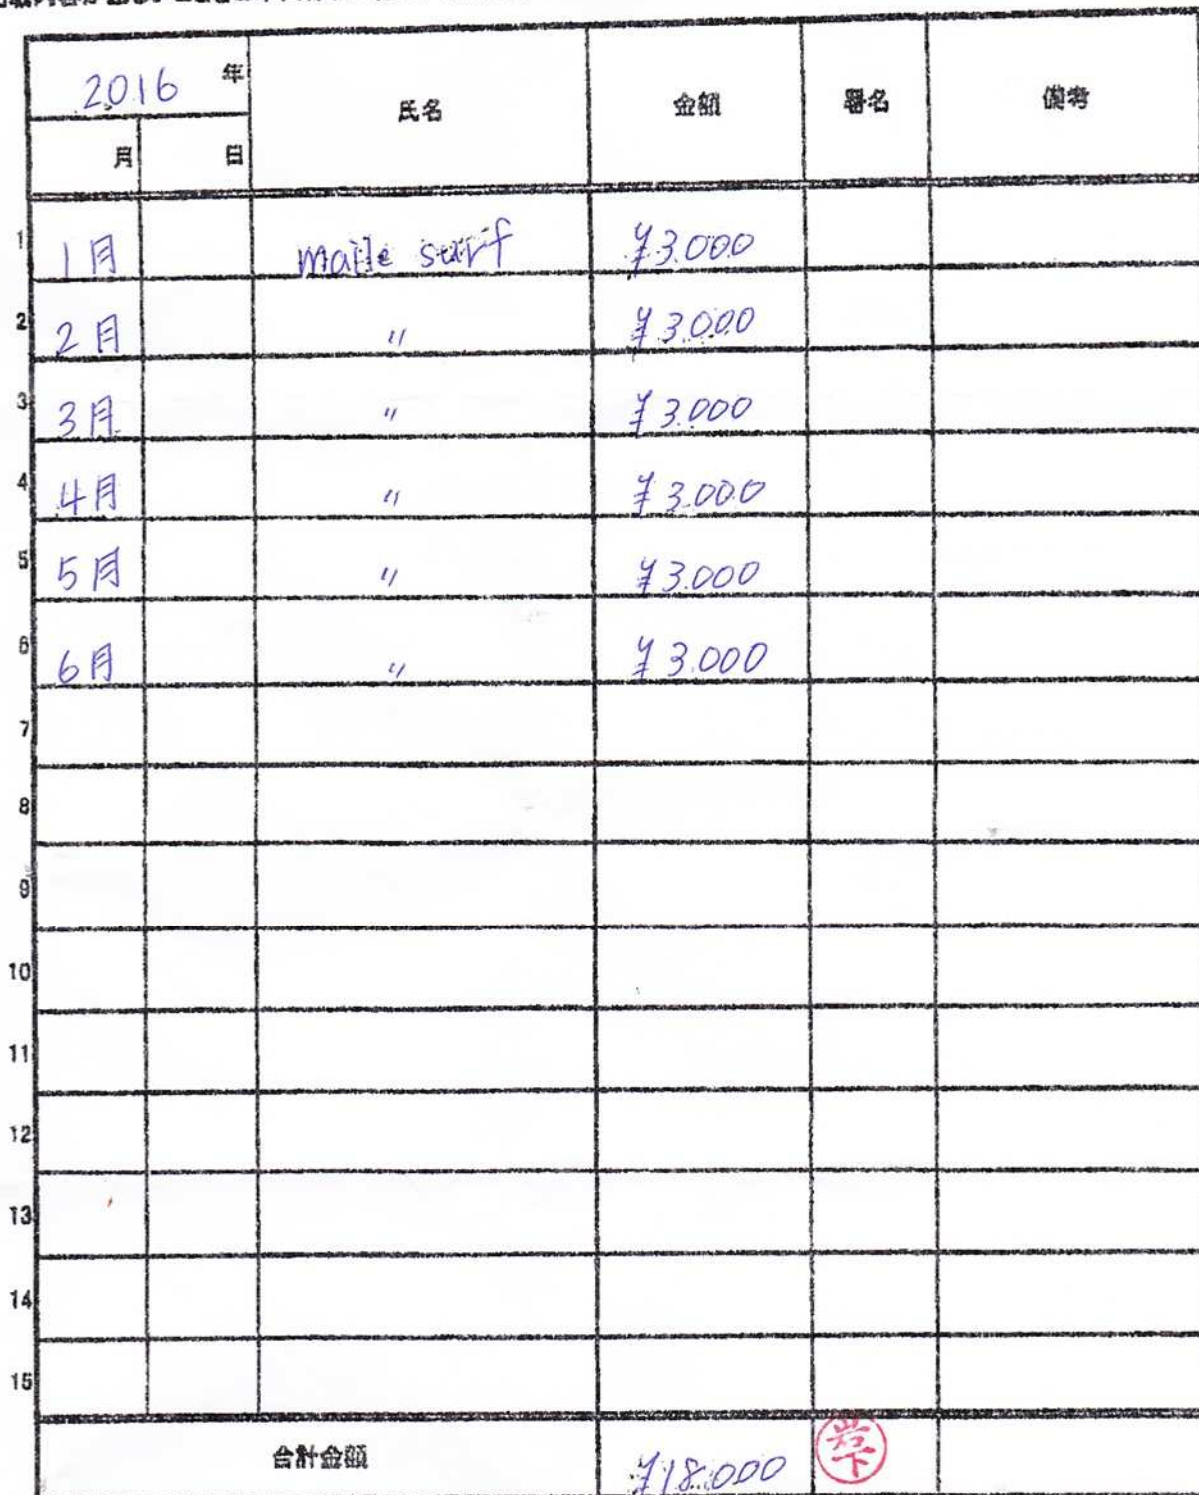 2016 年
月 日 氏名 金額 署名 備考
1 1月 maile surf ¥3.000
2 2月 〃 ¥3.000
3 3月 〃 ¥3.000
4 4月 〃 ¥3.000
5 5月 〃 ¥3.000
6 6月 〃 ¥3.000
7
8
9
10
11
12
13
14
15
合計金額 ¥18.000 岩下